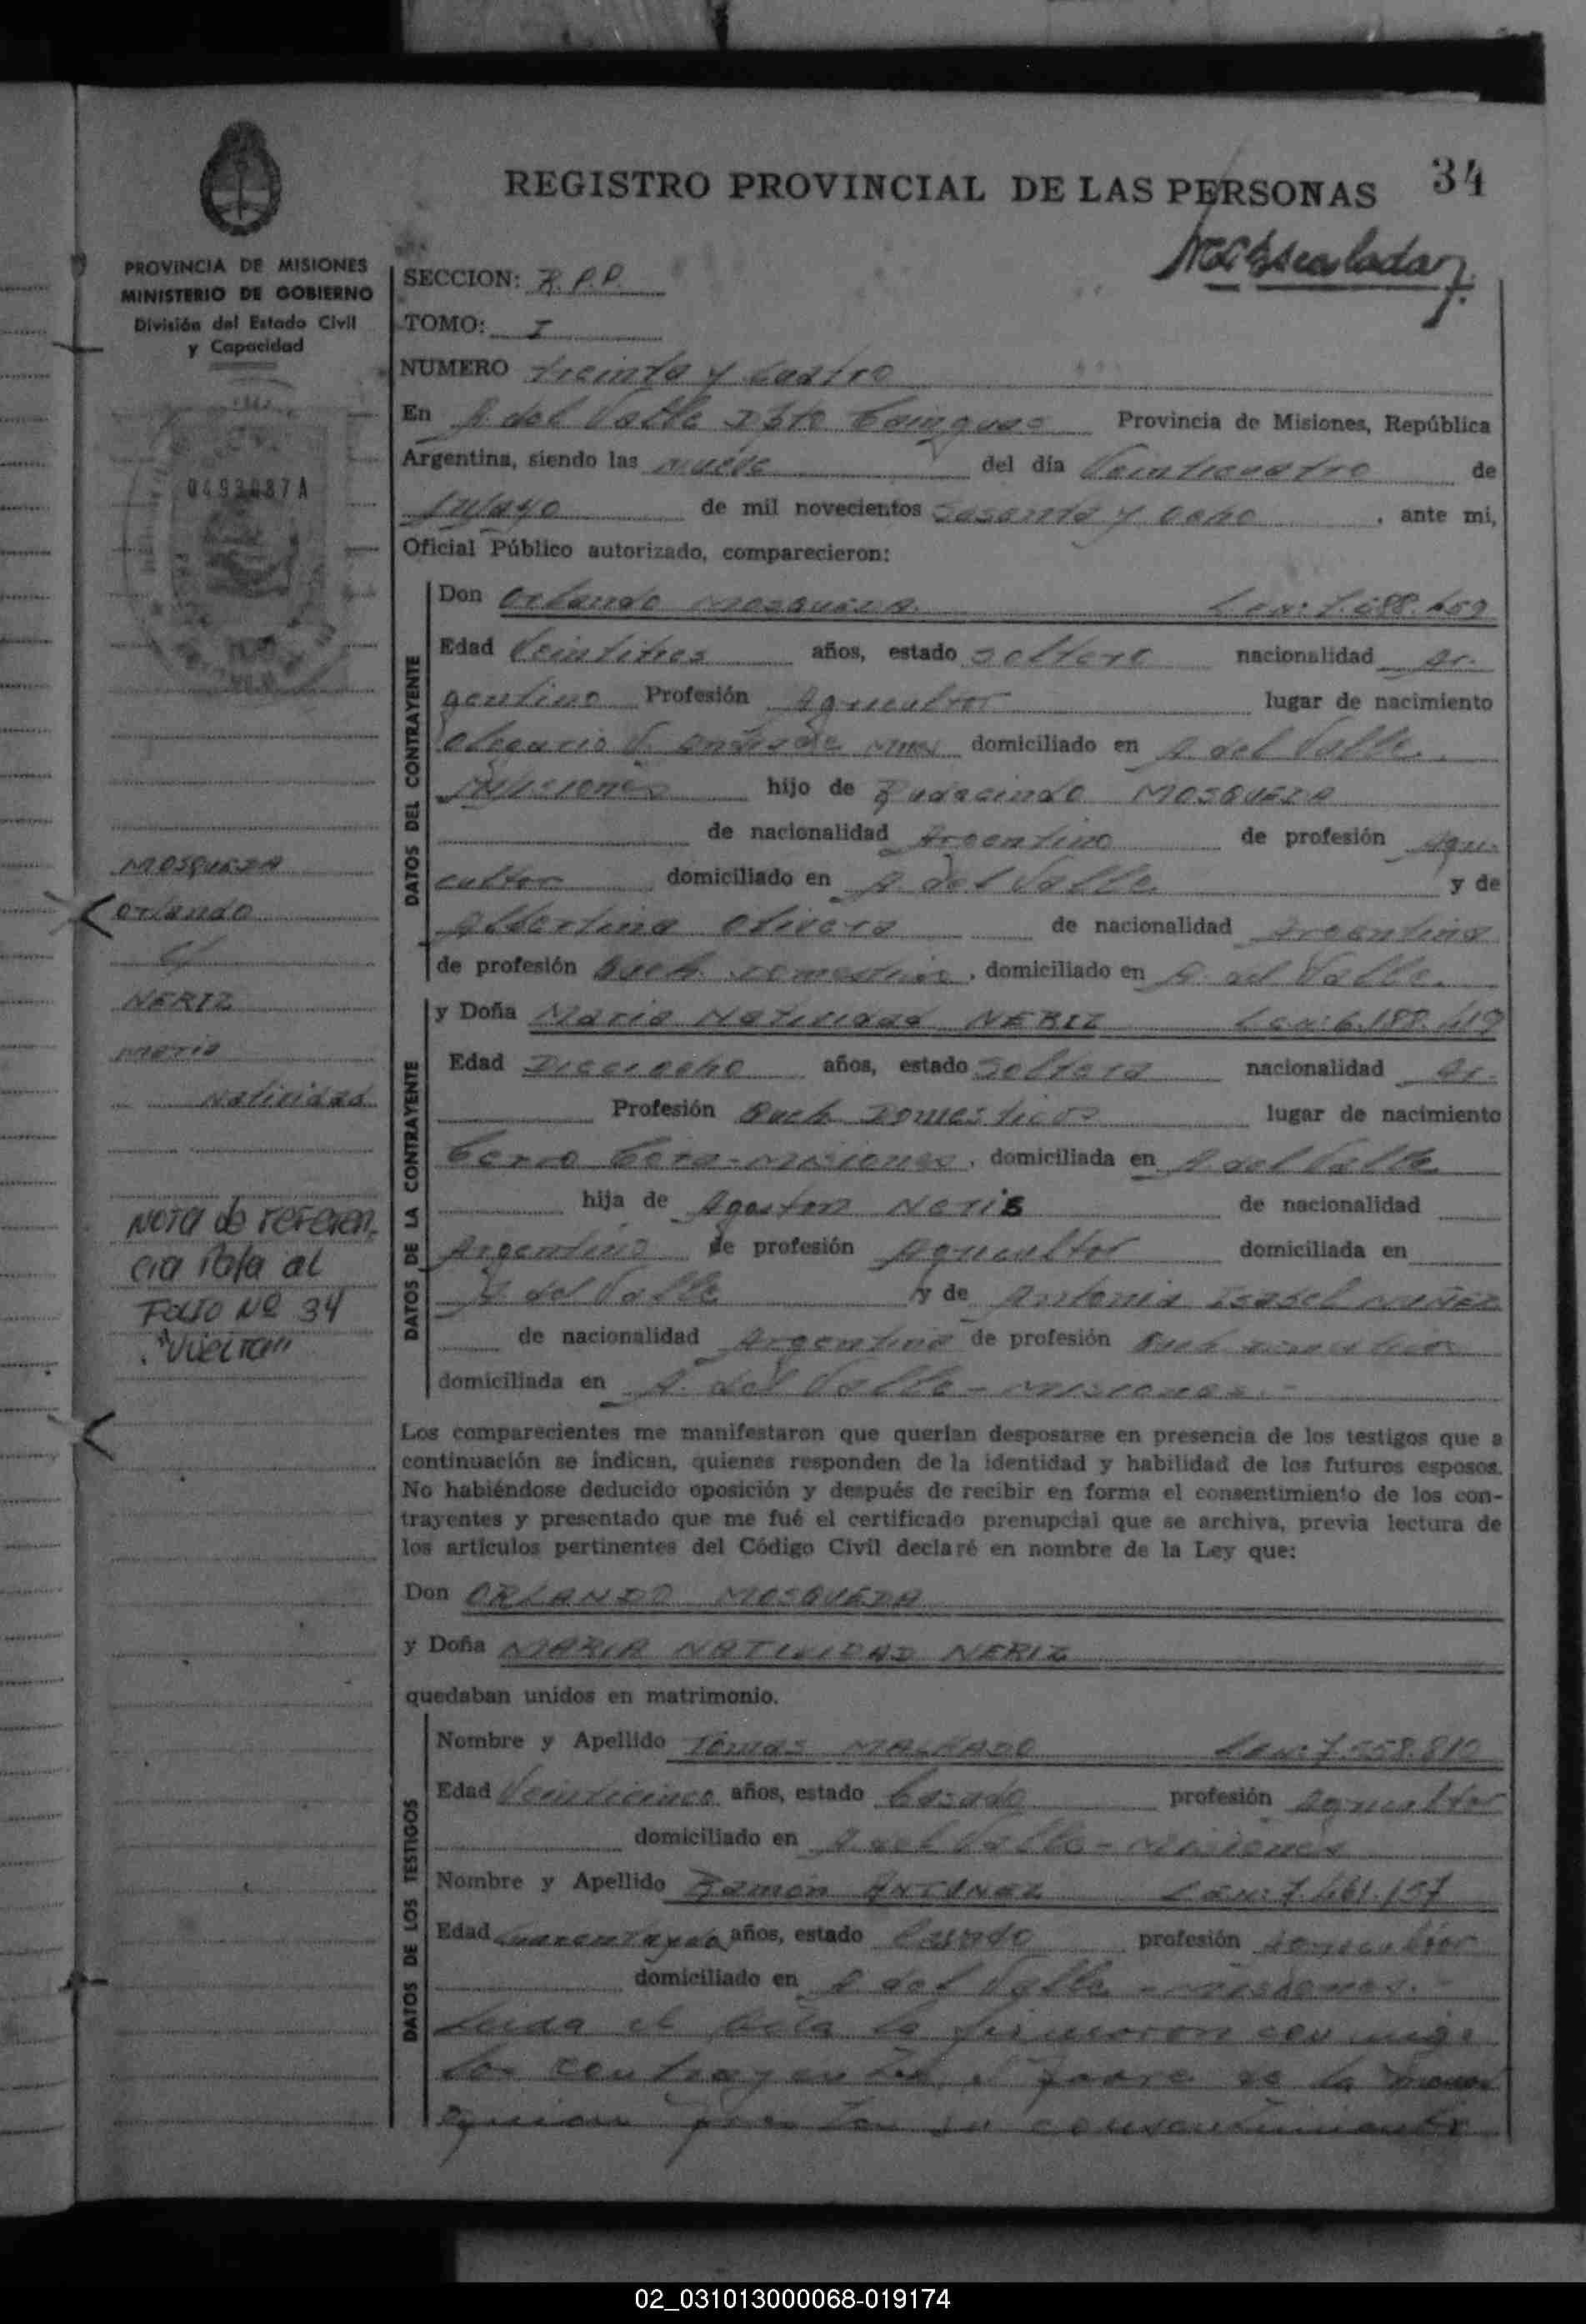 34
REGISTRO PROVINCIAL DE LAS PERSONAS
PROVINCIA DE MISIONES
MINISTERIO DE GOBIERNO
División del Estado Civil
y Capacidad
0493087A
MOSQUEDA
Orlando
c/
NERIZ
Maria
Natividad
Nota de referen-
cia Pasa al
Folio Nº 34
"Vuelta"
SECCION: R.P.P.
TOMO: I
NUMERO treinta y cuatro
En A. del Valle Dpto Cainguas Provincia de Misiones, República
Argentina, siendo las nueve del día Veinticuatro de
de mil novecientos sesenta y ocho, ante mi,
Oficial Público autorizado, comparecieron:
DATOS DEL CONTRAYENTE
Don Orlando MOSQUEDA
Edad Veintitres años, estado soltero nacionalidad Ar-
gentino Profesión Agricultor lugar de nacimiento
Olegario V. Andrade Mnes domiciliado en A. del Valle
Misiones hijo de Rudecindo MOSQUEDA
de nacionalidad Argentino de profesión Agri-
cultor domiciliado en A. del Valle y de
Albertina Olivera de nacionalidad Argentina
de profesión Queh. domesticos, domiciliado en A. del Valle
DATOS DE LA CONTRAYENTE
y Doña Maria Natividad NERIZ
Edad Dieciocho años, estado Soltera nacionalidad Ar.
Profesión Queh Domesticos lugar de nacimiento
Cerro Cora-Misiones, domiciliada en A. del Valle
hija de Agustin Neris de nacionalidad
Argentino de profesión Agricultor domiciliada en
A. del Valle y de Antonia Isabel NUÑEZ
de nacionalidad Argentina de profesión Queh domesticos
domiciliada en A. del Valle - Misiones.-
Los comparecientes me manifestaron que querían desposarse en presencia de los testigos que a
continuación se indican, quienes responden de la identidad y habilidad de los futuros esposos.
No habiéndose deducido oposición y después de recibir en forma el consentimiento de los con-
trayentes y presentado que me fué el certificado prenupcial que se archiva, previa lectura de
los artículos pertinentes del Código Civil declaré en nombre de la Ley que:
Don ORLANDO MOSQUEDA
y Doña MARIA NATIVIDAD NERIZ
quedaban unidos en matrimonio.
DATOS DE LOS TESTIGOS
Nombre y Apellido Tomas MACHADO
Edad Veinticinco años, estado Casado profesión Agricultor
domiciliado en A. del Valle - Misiones
Nombre y Apellido Ramón ANTUNEZ
Edad años, estado Casado profesión Agricultor
domiciliado en A. del Valle - Misiones.-
Leida el Acta la firmaron con migo
los contrayentes, el padre de la menor
quien presta su consentimiento
02_031013000068-019174